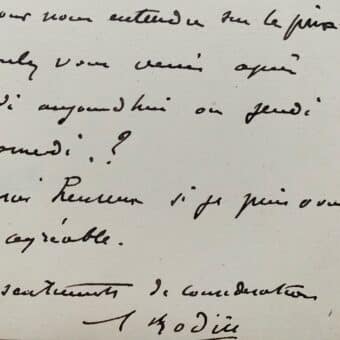 our nous entendre sur le prix
ulez vous venir après
di aujourdhui ou jeudi
amedi. ?
rais heureux si je puis vou
agréable.
sentiments de considération
A Rodin